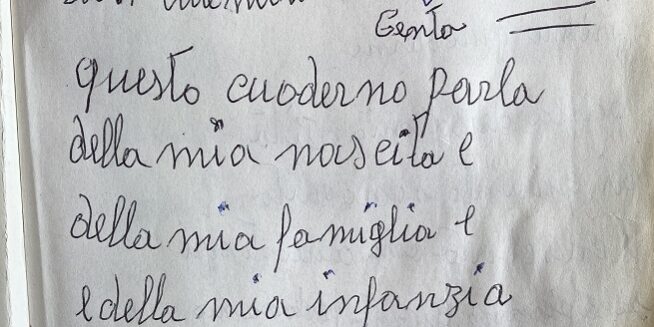 Genta
questo cuoderno parla
della mia nascita e
della mia famiglia e
e della mia infanzia